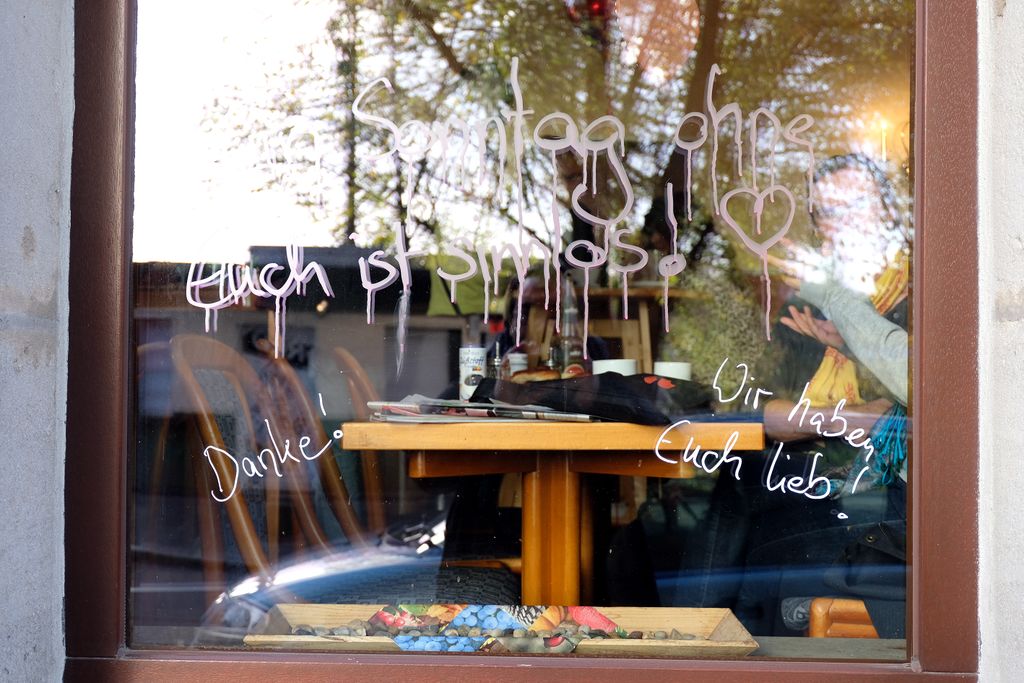 Sonntag ohne
Euch ist sinnlos!
Danke!
Wir haben
Euch lieb!